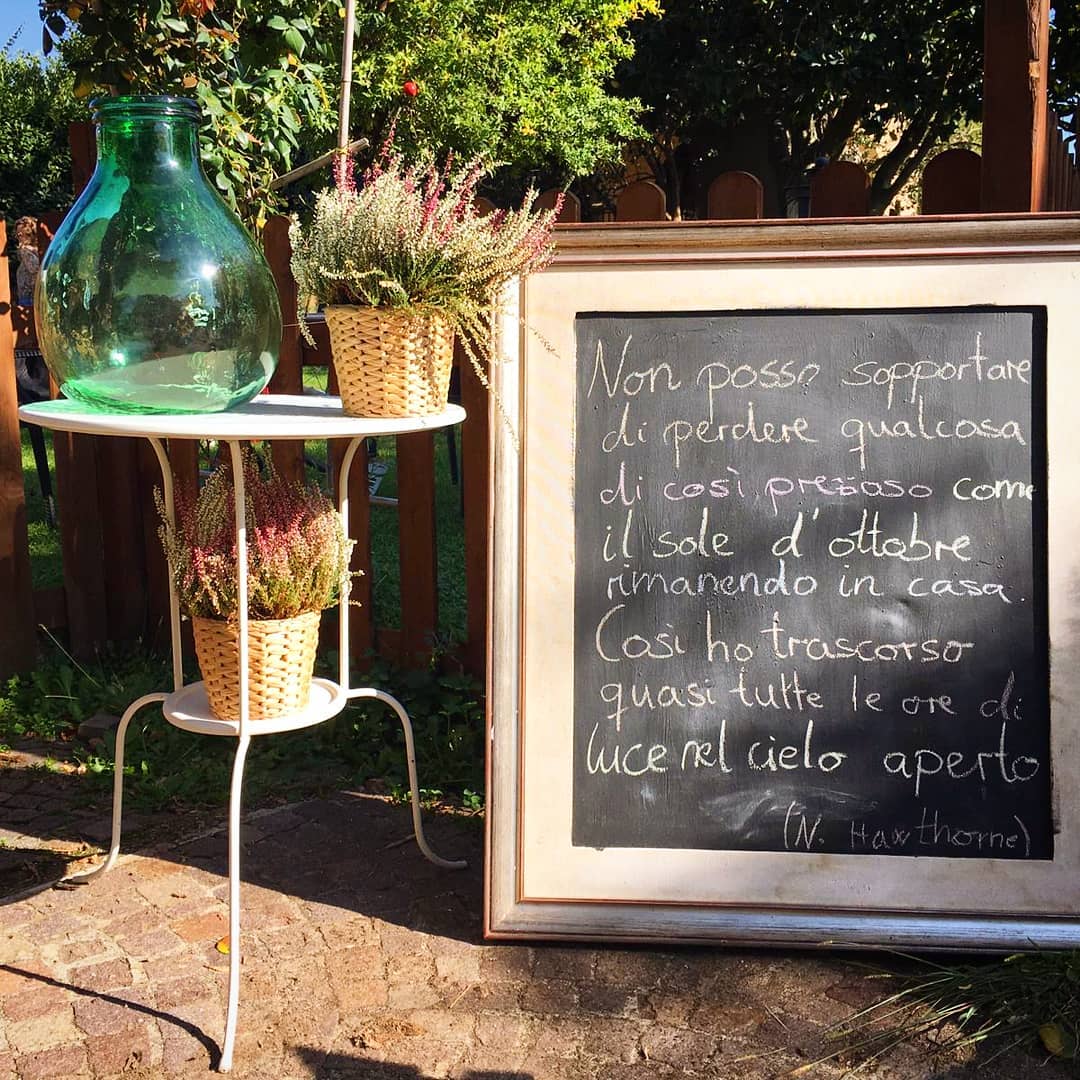 Non posso sopportare
di perdere qualcosa
di così prezioso come
il sole d' ottobre
rimanendo in casa.
Così ho trascorso
quasi tutte le ore di
luce nel cielo aperto
(N. Hawthorne)